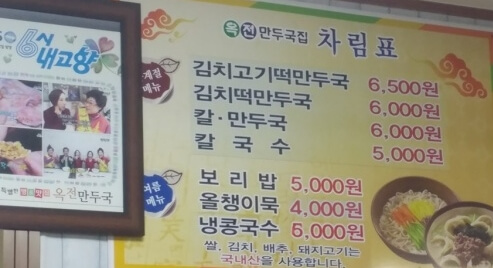 6시
내고향
옥전만두국
옥전만두국집 차림표
계절
메뉴
김치고기떡만두국 6,500원
김치떡만두국 6,000원
칼·만두국 6,000원
칼국수 5,000원
여름
메뉴
보리밥 5,000원
올챙이묵 4,000원
냉콩국수 5,000원
쌀, 김치, 배추, 돼지고기는
국내산을 사용합니다.